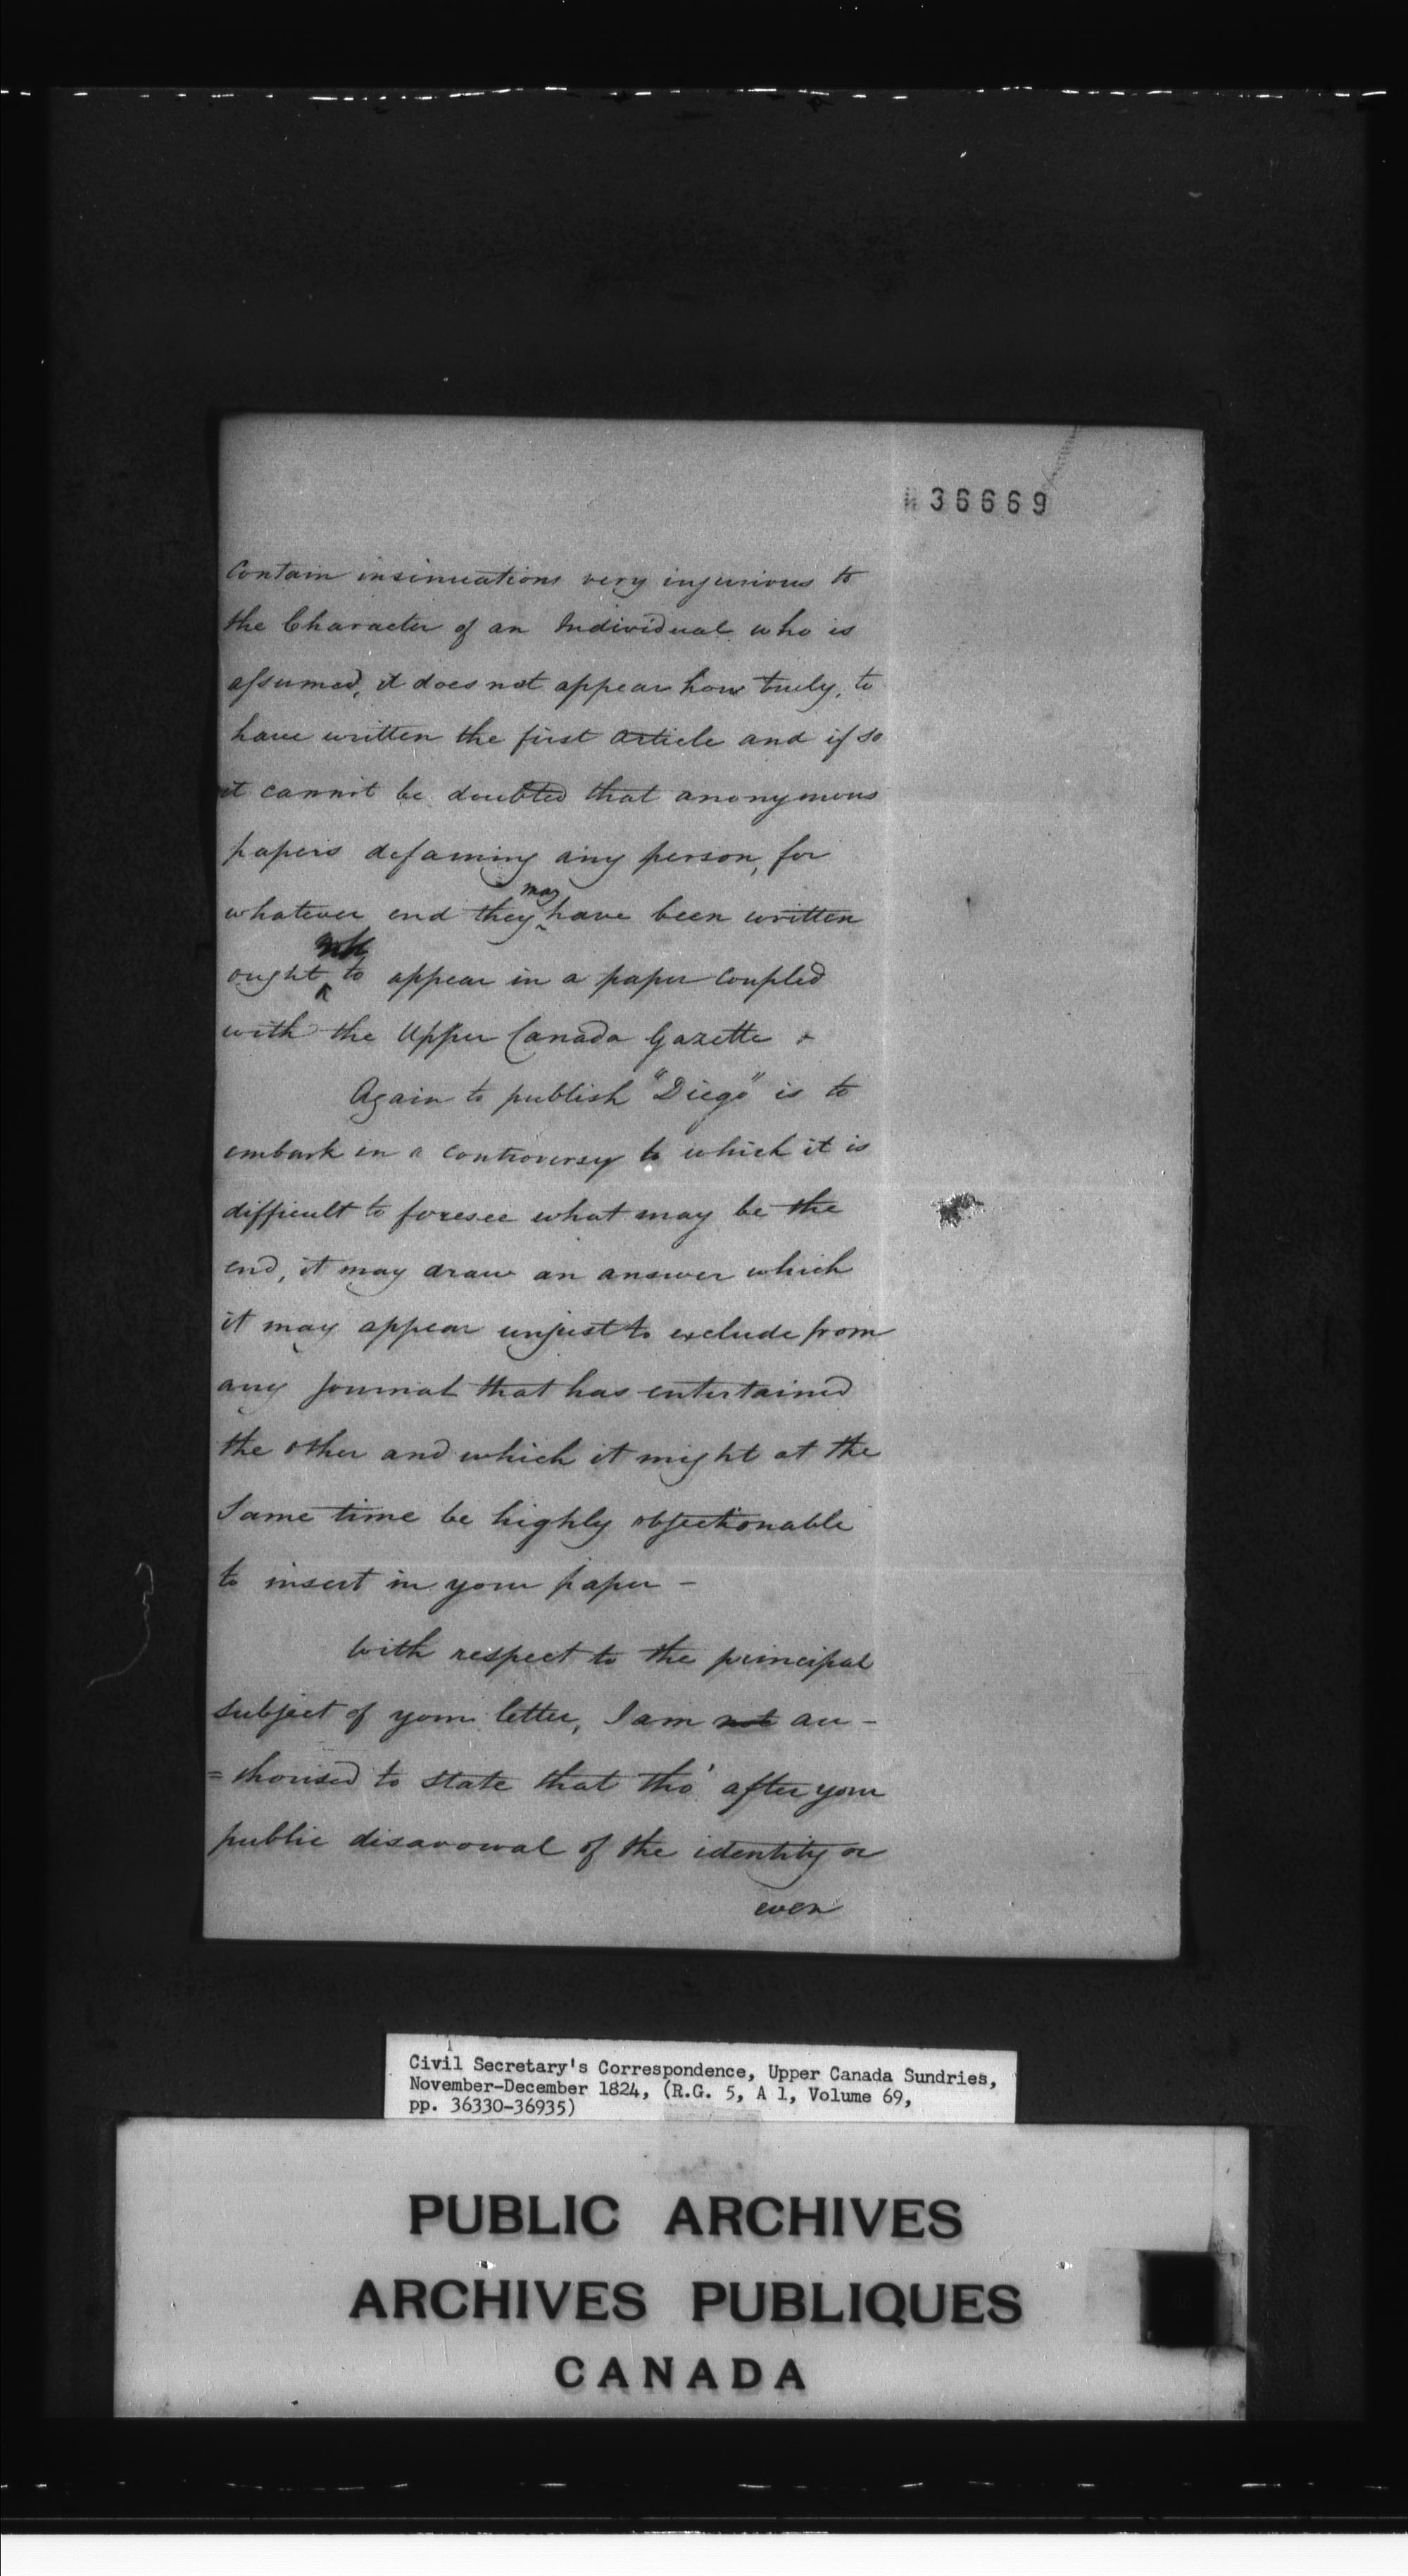 36669
Contain insinuations very injurious to
the Character of an Individual who is
assumed, it does not appear how truely, to
have written the first article and if so
it cannot be doubted that anonymous
papers defaming any person, for
whatever end they may have been written
ought not to appear in a paper coupled
with the Upper Canada Gazette
Again to publish "Diego" is to
embark in a controversy to which it is
difficult to foresee what may be the
end, it may draw an answer which
it may appear unjust to exclude from
any Journal that has entertained
the other and which it might at the
Same time be highly objectionable
to insert in your paper -
With respect to the principal
subject of your letter, I am not au-
=thorised to state that tho' after your
public disavowal of the identity or
even
Civil Secretary's Correspondence, Upper Canada Sundries,
November-December 1824, (R.G. 5, A 1, Volume 69,
pp. 36330-36935)
PUBLIC ARCHIVES
ARCHIVES PUBLIQUES
CANADA